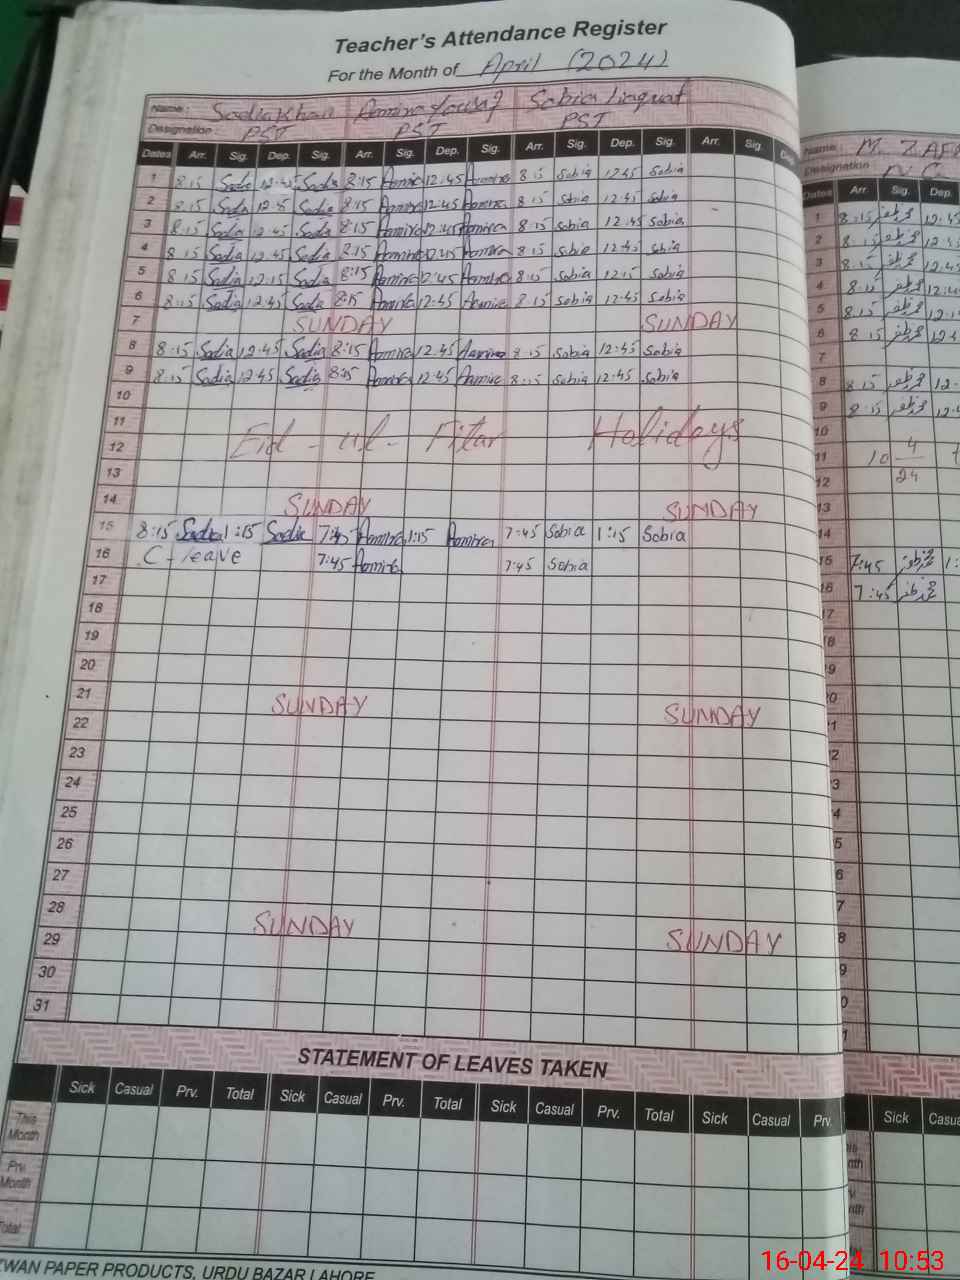 Teacher's Attendance Register
For the Month of April (2024)
Name: Sadia Khan Aamira Yousaf Sobia Liaquat
Designation PST PST PST
Dates Arr. Sig. Dep. Sig. Arr. Sig. Dep. Sig. Arr. Sig. Dep. Sig. Arr. Sig. Dep.
1 8:15 Sadia 12:45 Sadia 8:15 Aamira 12:45 Aamira 8:15 Sobia 12:45 Sobia
2 8:15 Sadia 12:45 Sadia 8:15 Aamira 12:45 Aamira 8:15 Sobia 12:45 Sobia
3 8:15 Sadia 12:45 Sadia 8:15 Aamira 12:45 Aamira 8:15 Sobia 12:45 Sobia
4 8:15 Sadia 12:45 Sadia 8:15 Aamira 12:45 Aamira 8:15 Sobia 12:45 Sobia
5 8:15 Sadia 12:15 Sadia 8:15 Aamira 12:45 Aamira 8:15 Sobia 12:15 Sobia
6 8:15 Sadia 12:45 Sadia 8:15 Aamira 12:45 Aamira 8:15 Sobia 12:45 Sobia
7 SUNDAY SUNDAY
8 8:15 Sadia 12:45 Sadia 8:15 Aamira 12:45 Aamira 8:15 Sobia 12:45 Sobia
9 8:15 Sadia 12:45 Sadia 8:15 Aamira 12:45 Aamira 8:15 Sobia 12:45 Sobia
10
11
12 Eid - ul - Fitar Holidays
13
14 SUNDAY SUNDAY
15 8:15 Sadia 1:15 Sadia 7:45 Aamira 1:15 Aamira 7:45 Sobia 1:15 Sobia
16 C-leave 7:45 Aamira 7:45 Sobia
17
18
19
20
21 SUNDAY SUNDAY
22
23
24
25
26
27
28 SUNDAY SUNDAY
29
30
31
STATEMENT OF LEAVES TAKEN
Sick Casual Prv. Total Sick Casual Prv. Total Sick Casual Prv. Total Sick Casual Prv.
This Month
Prv. Month
Total
ZWAN PAPER PRODUCTS, URDU BAZAR LAHORE
Name: M. ZAFA
Designation
Dates Arr. Sig. Dep.
1 8:15 12:45
2 8:15 12:45
3 8:15 12:45
4 8:15 12:4
5 8:15 12:1
6 8:15 12:4
7
8 8:15 12:
9 8:15 12:4
10
11 10 4/24
12
13
14
15 7:45 1:
16 7:45
17
18
19
Sick Casua
16-04-24 10:53